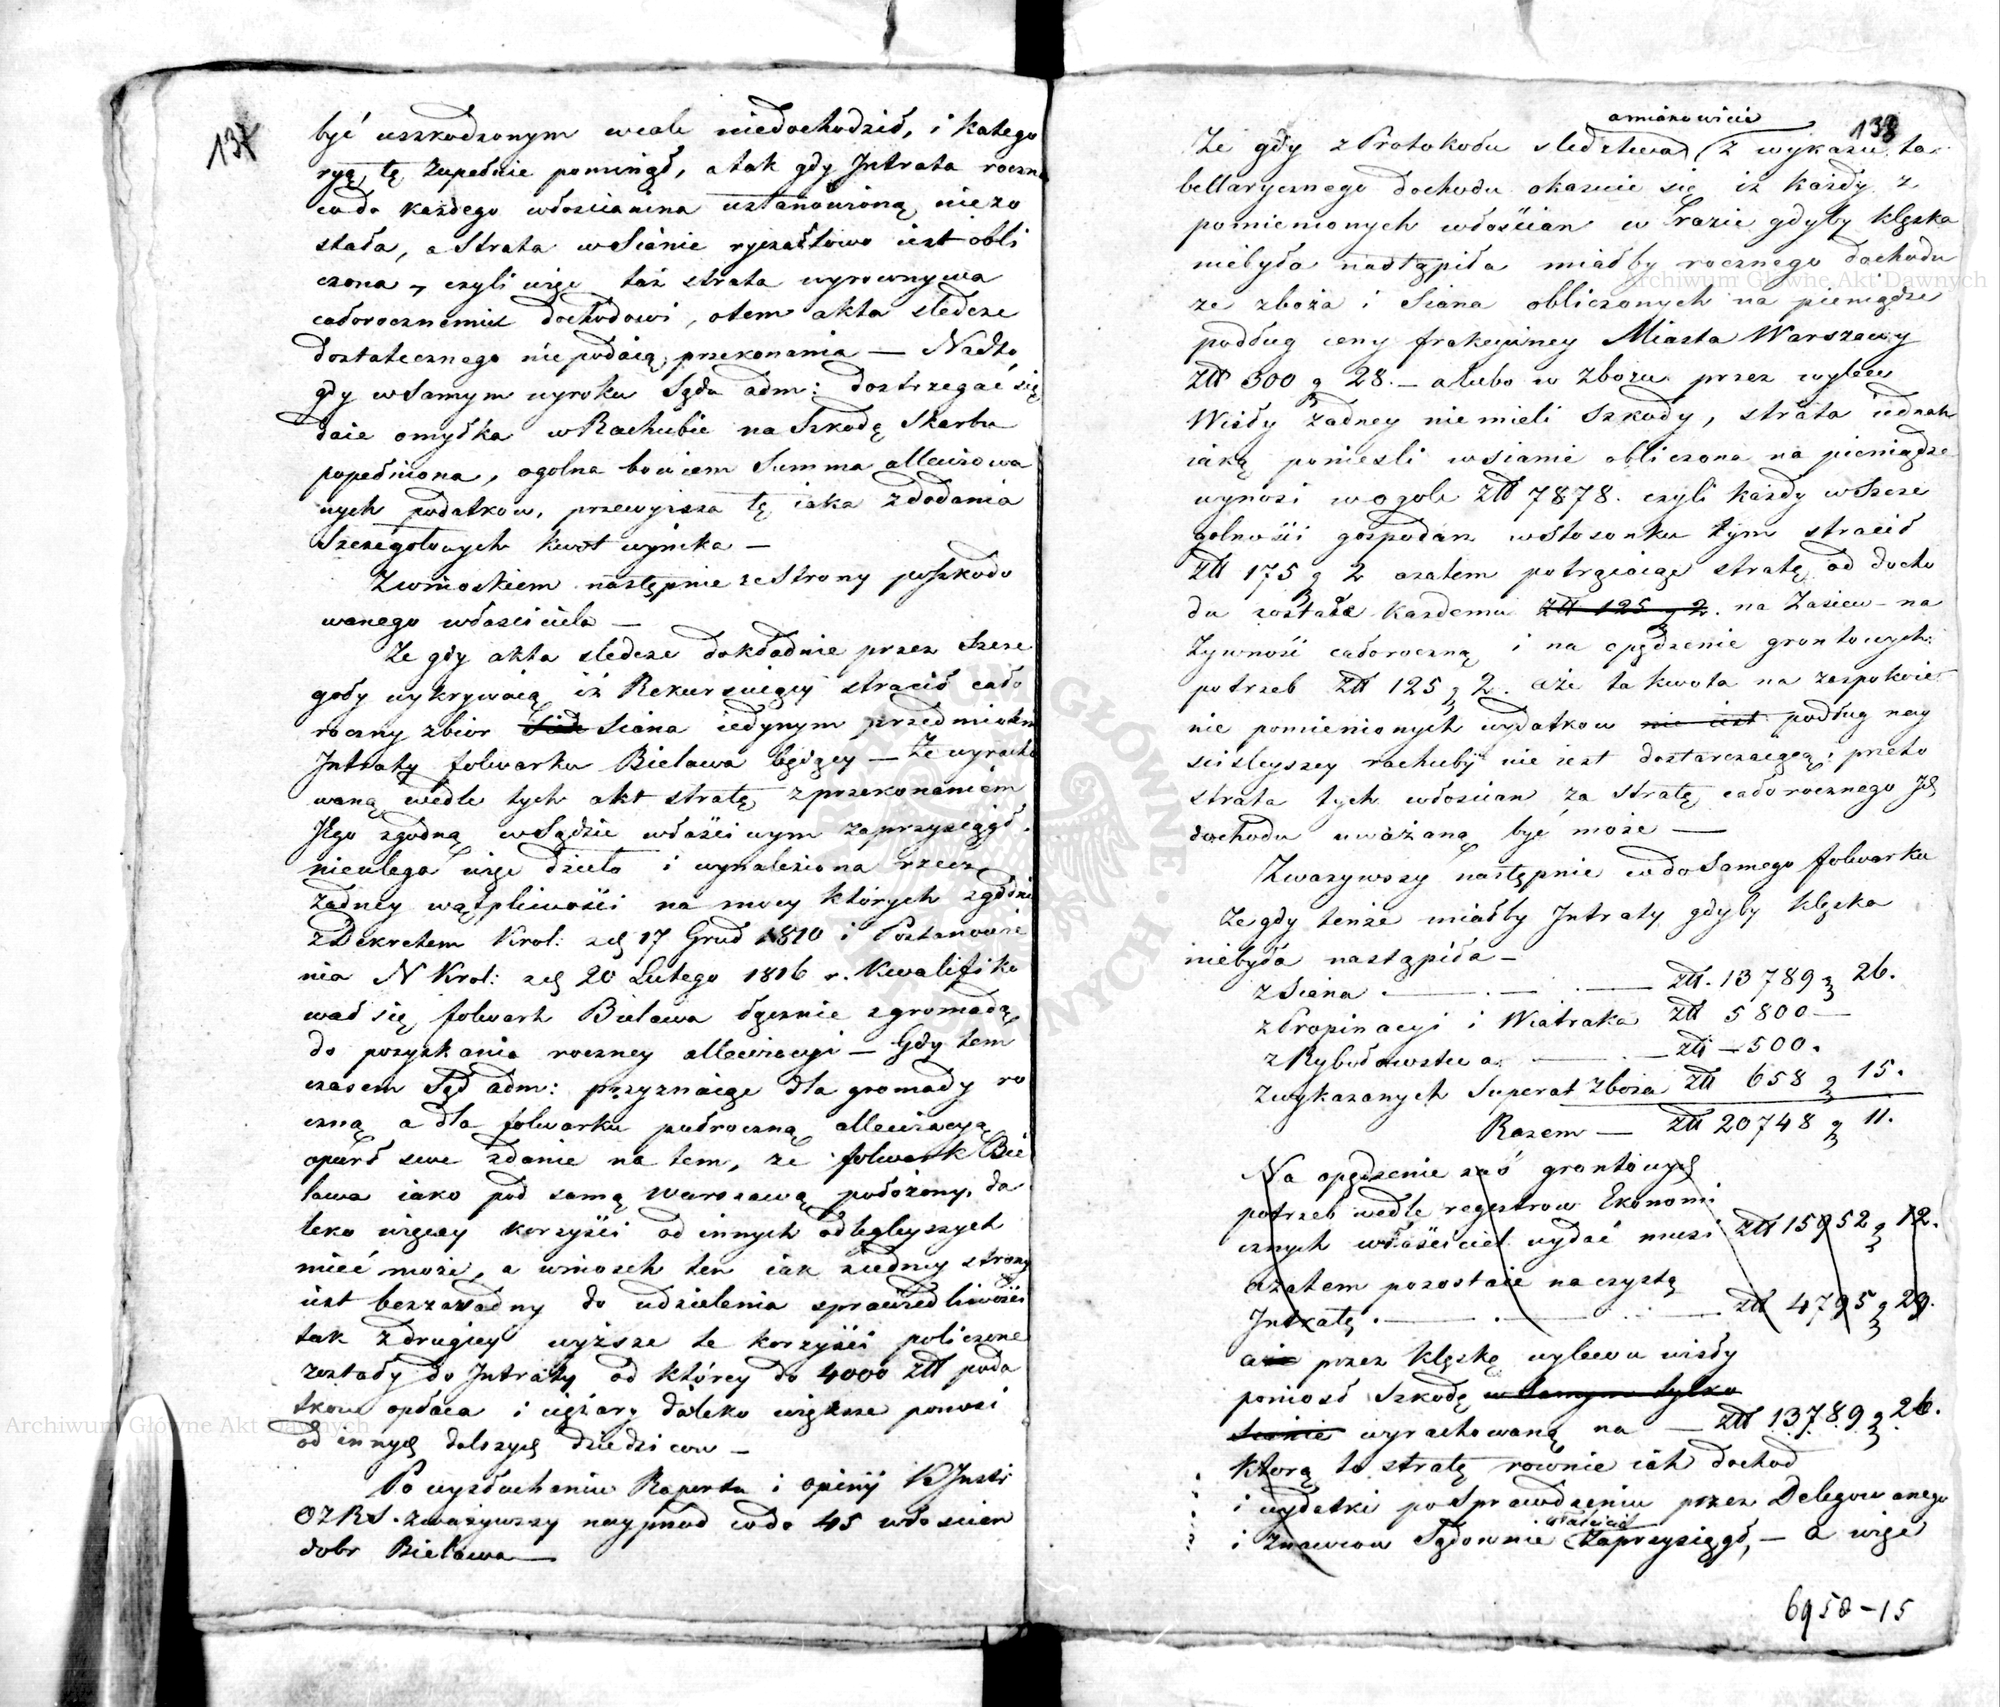 137
być uszkodzonym wcale niedochodził, i katego
ryą tę zupełnie pominął, a tak gdy Intrata roczna
codo każdego włościanina ustanowioną niezo
stała, a strata w Sianie ryczałtowo iest obli
czona, czyli więc taż strata wyrownywa
całorocznemu dochodowi, o tem akta sledcze
dostatecznego nie podaią przekonania — Nadto
gdy w samym wyroku Sądu adm: dostrzegać się
daie omyłka w Rachubie na Szkodę Skarbu
popełniona, ogolna bowiem Summa allewiowa
nych podatkow, przewyższa tę iaka z dodania
Szczegołowych kwot wynika —
Zwnioskiem następnie ze strony poszkodo
wanego właściciela —
Że gdy akta sledcze dokładnie przez szcze
goły wykrywaią iż Rekursuiący stracił cało
roczny zbior siana iedynym przedmiotem
Intraty folwarku Bielawa będący — Że wyracho
waną wedle tych akt stratę z przekonaniem
Jego zgodną w Sądzie właściwym zaprzysiągł.
nieulega więc dzieło i wynaleziona rzecz
żadney wątpliwości na mocy których zgodnie
z Dekretem Krol: z d 17 Grud 1810 i Postanowie
nia N Krol: z d 20 Lutego 1816 r. Kwalifiko
wał się folwark Bielawa łącznie z gromadą
do pozyskania roczney allewiacyi — Gdy tem
czasem Sąd adm: przyznaiąc dla gromady ro
czną a dla folwarku pułroczną allewiacyą
oparł swe zdanie na tem, że folwark Bie
lawa iako pod samą Warszawą położony, da
leko więcey korzyści od innych odlegleyszych
mieć może, a wniosek ten iak z iedney strony
iest bezzasadny do udzielenia sprawiedliwości
tak z drugiey wyższe te korzyści policzone
zostały do Intraty od ktorey do 4000 złł poda
tkow opłaca i ciężary daleko większe ponosi
od innych dalszych dziedzicow —
Po wysłuchaniu Raportu i opinij
OZRS. zważywszy nayprzod codo 45 włościan
dobr Bielawa —
138
amianowicie
Że gdy z Protokołu sledztwa z wykazu ta
bellarycznego dochodu okazuie się iż każdy z
pomienionych włościan w razie gdyby klęska
niebyła nastąpiła miałby rocznego dochodu
ze zboża i siana obliczonych na pieniądze
podług ceny frakcyiney Miasta Warszawy
złł 300 g 28. — a lubo w zbożu przez wylew
Wisły żadney niemieli szkody, strata iednak
iaką ponieśli w sianie obliczona na pieniądze
wynosi w ogole złł 7878. czyli każdy w szcze
golności gospodarz w stosunku tym stracił
złł 175 g 2 azatem potrąciaiąc stratę od docho
du zostaie każdemu złł 125 g 2. na Zasiew — na
żywność całoroczną i na opędzenie grontowych
potrzeb złł 125 g 2. a że ta kwota na zaspokoie
nie pomienionych wydatkow nie iest podług nay
ścisleyszey rachuby nie iest dostarczaiącą; przeto
strata tych włościan za stratę całorocznego Ich
dochodu uważaną być może —
Zważywszy następnie codo Samego folwarku
Że gdy tenże miałby Intraty gdyby klęska
niebyła nastąpiła —
z Siana . — . — złł. 13789 g 26.
z Propinacyi i Wiatraka złł 5800 —
z Rybołowstwa — złł — 500.
z wykazanych Superat Zboża złł 658 g 15.
Razem — złł 20748 g 11.
Na opędzenie zaś grontowych
potrzeb wedle regestrow Ekonomi
cznych właściciel wydać musi złł 15952 g 12.
azatem pozostaie na czystą
Intratę . — . — złł 4795 g 29.
a że przez klęskę wylewu wisły
poniosł Szkodę w Samym tylko
Sianie wyrachowaną na — złł 13789 g 26.
ktorą to stratę rownie iak dochod
i wydatki po Sprawdzeniu przez Delegowanego
właściciel
i Znawcow Sądownie zaprzysiągł, — a więc
6958 — 15
Archiwum Główne Akt Dawnych
Archiwum Główne Akt Dawnych